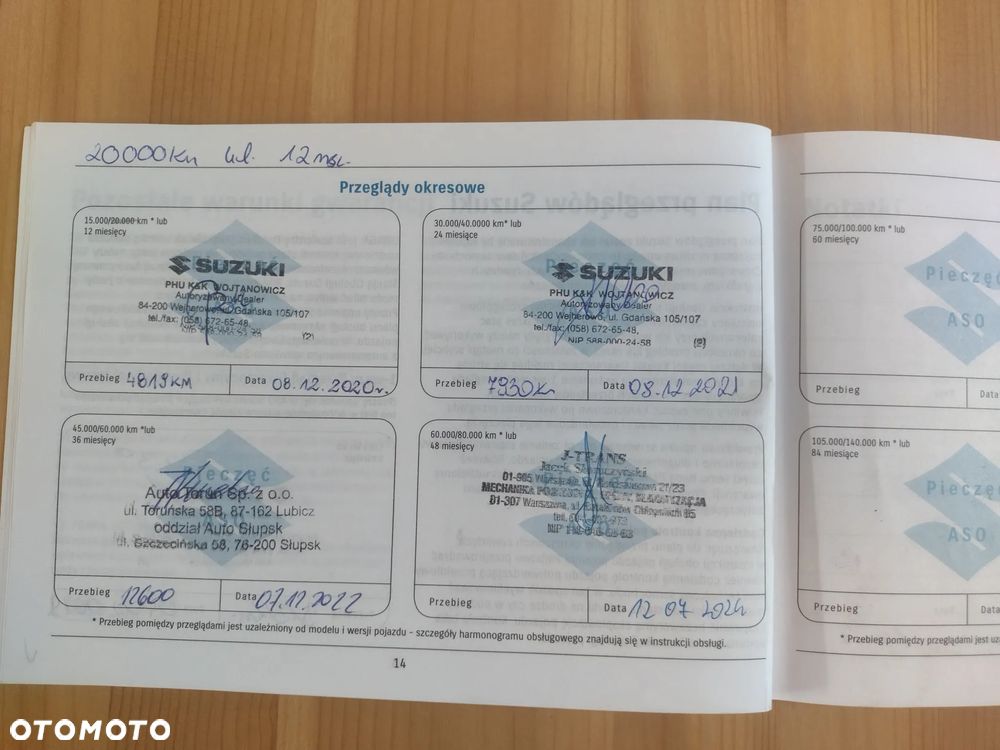 20000km lub 12 msc.
Przeglądy okresowe
15.000/20.000 km * lub
12 miesięcy
SUZUKI
PHU K&K WOJTANOWICZ
Autoryzowany Dealer
84-200 Wejherowo, ul. Gdańska 105/107
tel./fax: (058) 672-65-48,
Przebieg 4819 KM
Data 08.12.2020r.
30.000/40.0000 km * lub
24 miesiące
SUZUKI
PHU K&K WOJTANOWICZ
Autoryzowany Dealer
84-200 Wejherowo, ul. Gdańska 105/107
tel./fax: (058) 672-65-48,
NIP 588-000-24-58
Przebieg 7930km
Data 08.12.2021
45.000/60.000 km *lub
36 miesięcy
Pieczęć
Auto Toruń Sp. z o.o.
ul. Toruńska 58B, 87-162 Lubicz
oddział Auto Słupsk
ul. Szczecińska 58, 76-200 Słupsk
Przebieg 12600
Data 07.12.2022
60.000/80.000 km * lub
48 miesięcy
J-TRANS
Jacek
Warszawa, 21/23
MECHANIKA
01-307 Warszawa,
tel.
NIP
Przebieg
Data 12 07 2024
* Przebieg pomiędzy przeglądami jest uzależniony od modelu i wersji pojazdu - szczegóły harmonogramu obsługowego znajdują się w instrukcji obsługi.
14
75.000/100.000 km * lub
60 miesięcy
Pieczęć
ASO
Przebieg
Data
105.000/140.000 km * lub
84 miesiące
Pieczęć
ASO
Przebieg
Data
* Przebieg pomiędzy przeglądami jest
OTOMOTO